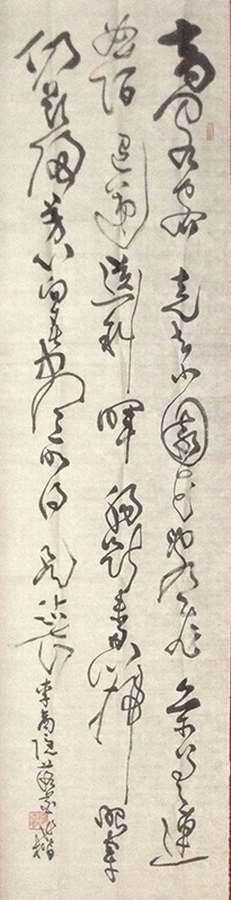 高閣客竟去小園花亂飛參差連
曲陌迢遞送斜暉腸斷未忍掃眼穿
仍欲歸芳心向春盡所得是沾衣
李商隱落花